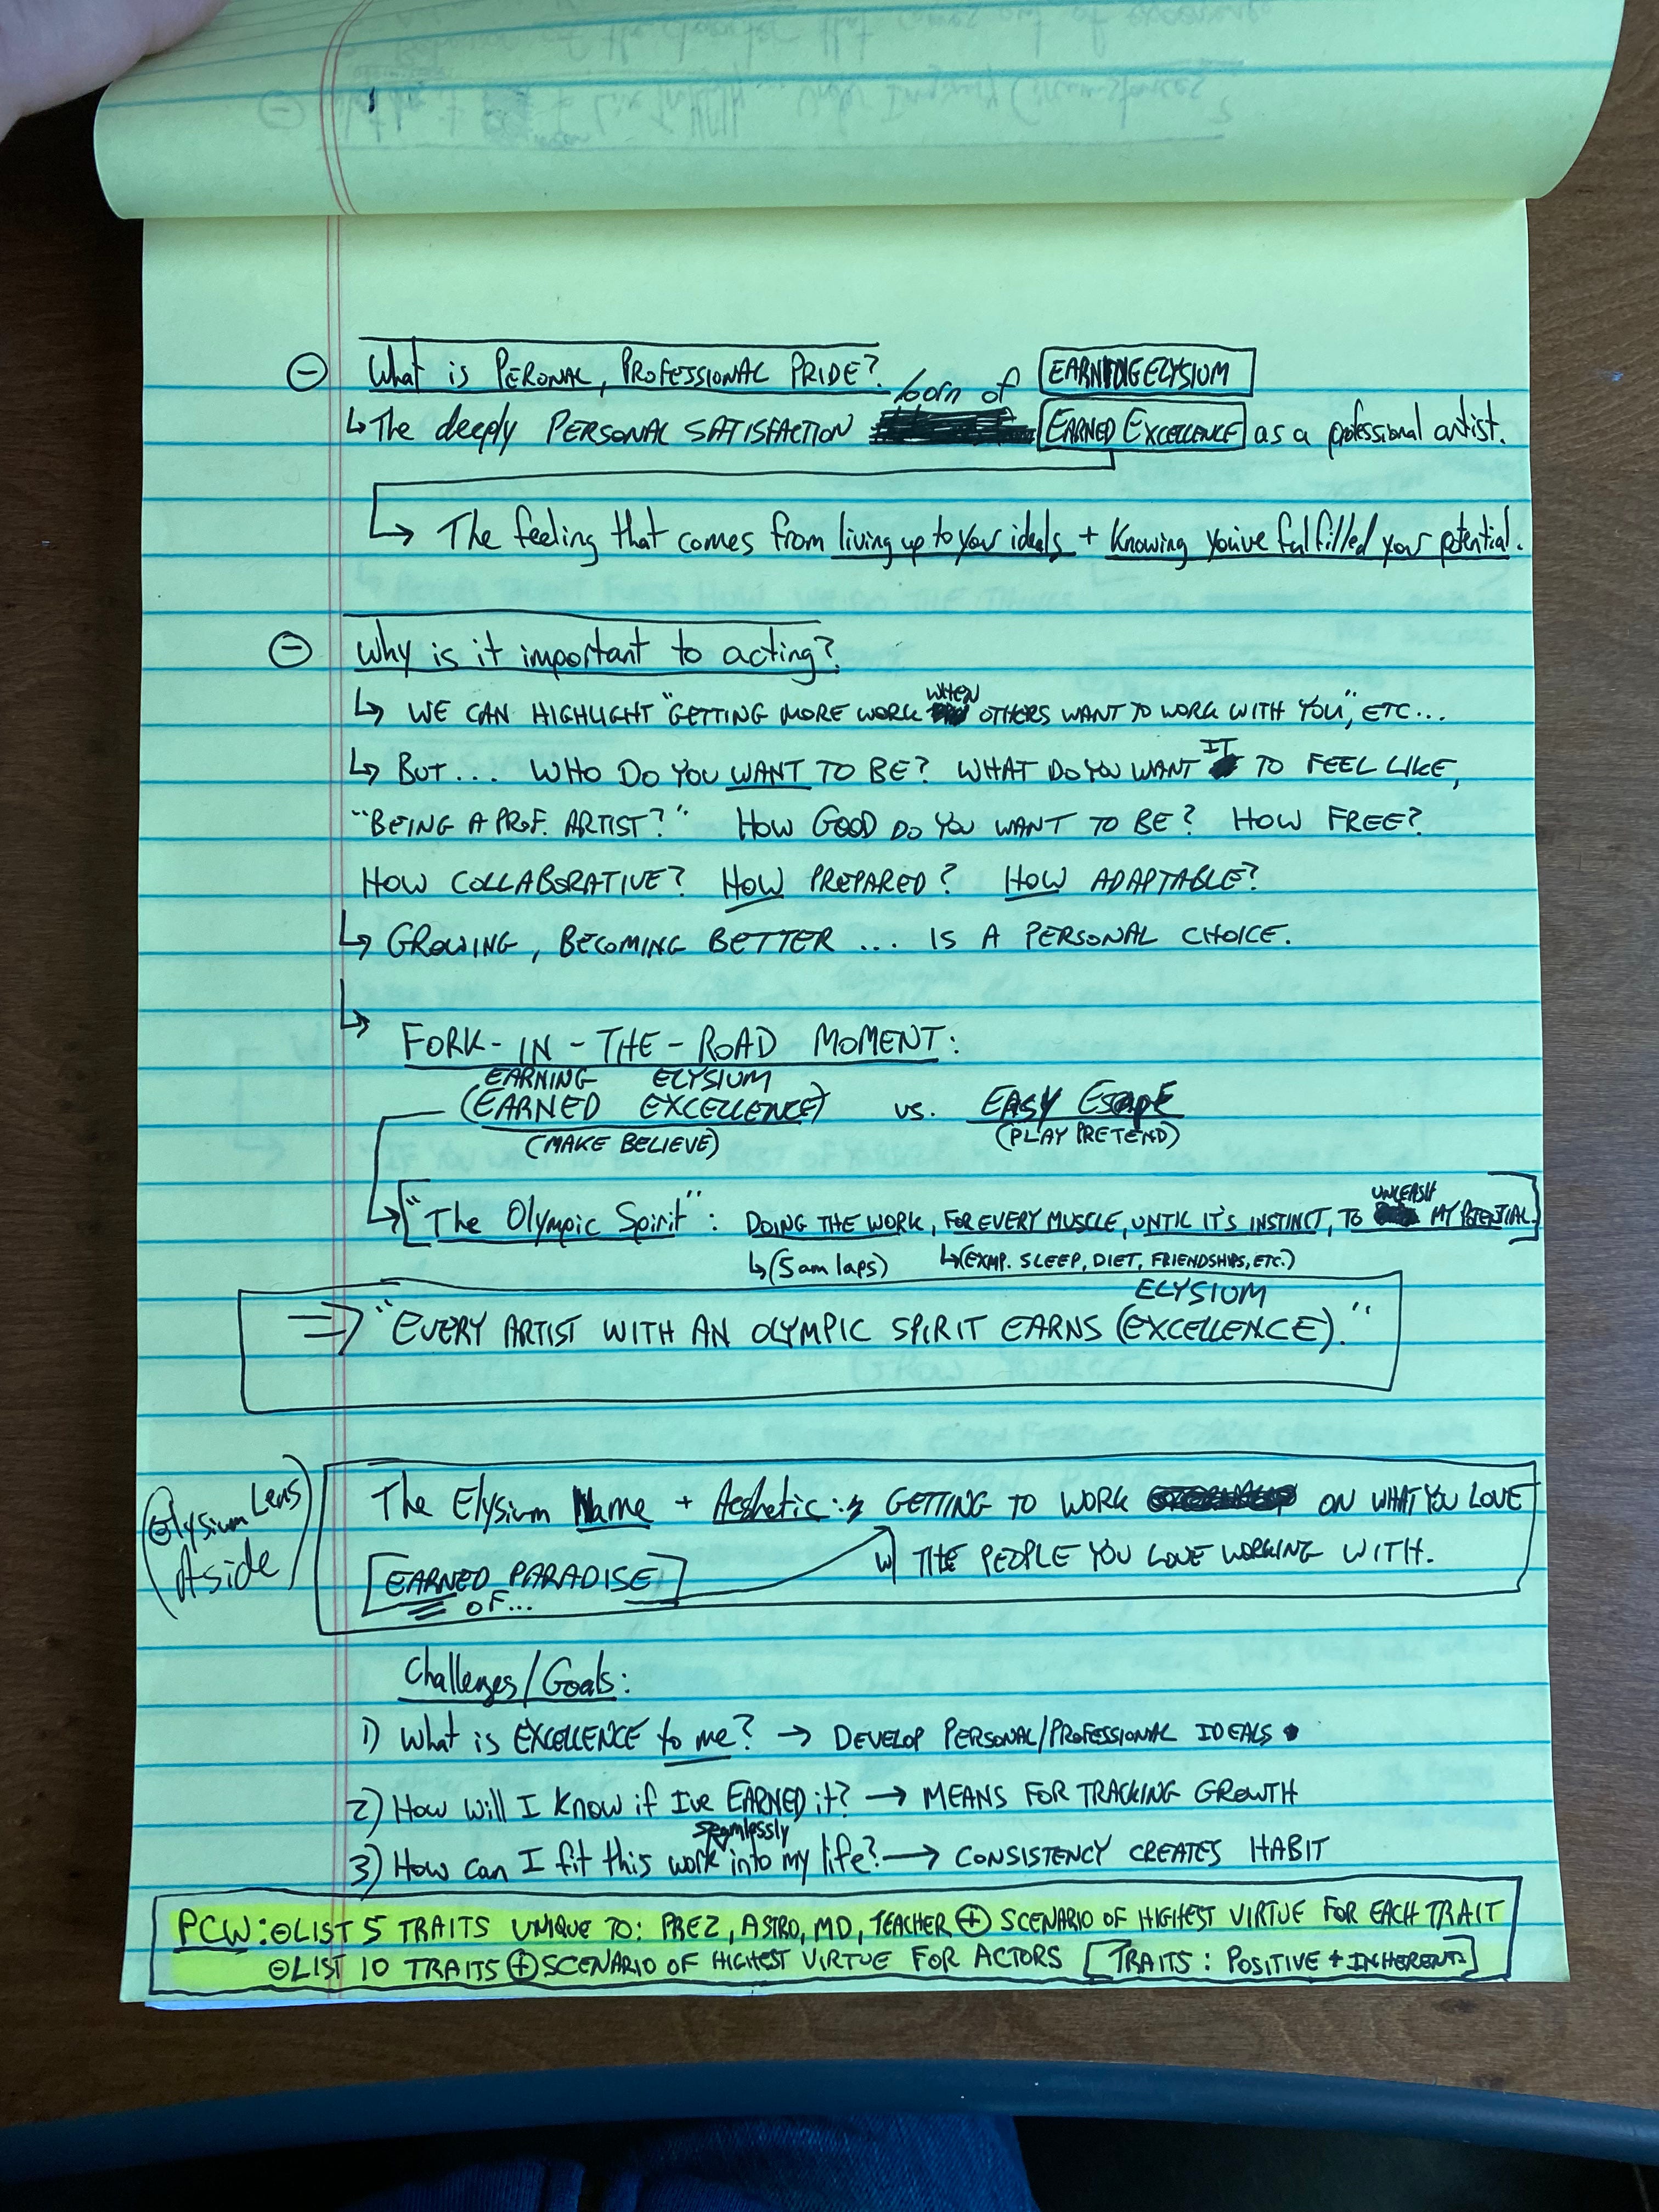 ⊖ What is PERONAL, PROFESSIONAL PRIDE?
born of EARNING ELYSIUM
↳ The deeply PERSONAL SATISFACTION EARNED EXCELLENCE as a professional artist.
↳ The feeling that comes from living up to your ideals + Knowing you've fulfilled your potential.
⊖ Why is it important to acting?
↳ WE CAN HIGHLIGHT "GETTING MORE WORK WHEN OTHERS WANT TO WORK WITH YOU", ETC...
↳ BUT... WHO DO YOU WANT TO BE? WHAT DO YOU WANT IT TO FEEL LIKE,
"BEING A PROF. ARTIST?" HOW GOOD DO YOU WANT TO BE? HOW FREE?
HOW COLLABORATIVE? HOW PREPARED? HOW ADAPTABLE?
↳ GROWING, BECOMING BETTER ... IS A PERSONAL CHOICE.
↳ FORK-IN-THE-ROAD MOMENT:
EARNING ELYSIUM
(EARNED EXCELLENCE) vs. EASY ESCAPE
(MAKE BELIEVE) (PLAY PRETEND)
↳ ["The Olympic Spirit": DOING THE WORK, FOR EVERY MUSCLE, UNTIL IT'S INSTINCT, TO UNLEASH MY POTENTIAL.]
↳ (5am laps) ↳ (EXMP. SLEEP, DIET, FRIENDSHIPS, ETC.)
ELYSIUM
⇒ "EVERY ARTIST WITH AN OLYMPIC SPIRIT EARNS (EXCELLENCE)."
(Elysium Lens Aside)
The Elysium Name + Aesthetic: GETTING TO WORK ON WHAT YOU LOVE
w/ THE PEOPLE YOU LOVE WORKING WITH.
[EARNED PARADISE]
OF...
Challenges/Goals:
1) What is EXCELLENCE to me? → DEVELOP PERSONAL/PROFESSIONAL IDEALS
2) How will I know if I've EARNED it? → MEANS FOR TRACKING GROWTH
3) How can I fit this work seamlessly into my life? → CONSISTENCY CREATES HABIT
PCW: ⊖LIST 5 TRAITS UNIQUE TO: PREZ, ASTRO, MD, TEACHER ⊕ SCENARIO OF HIGHEST VIRTUE FOR EACH TRAIT
⊖LIST 10 TRAITS ⊕ SCENARIO OF HIGHEST VIRTUE FOR ACTORS [TRAITS: POSITIVE + INHERENT.]